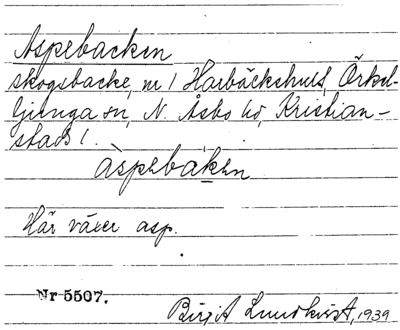 Aspebacken
skogsbacke, nr 1 Harbäckshult, Örkel-
ljunga sn, N. Åsbo hd, Kristian-
stads l.
àspebáken
Här växer asp.
Nr 5507.
Birgit Lundkvist, 1939